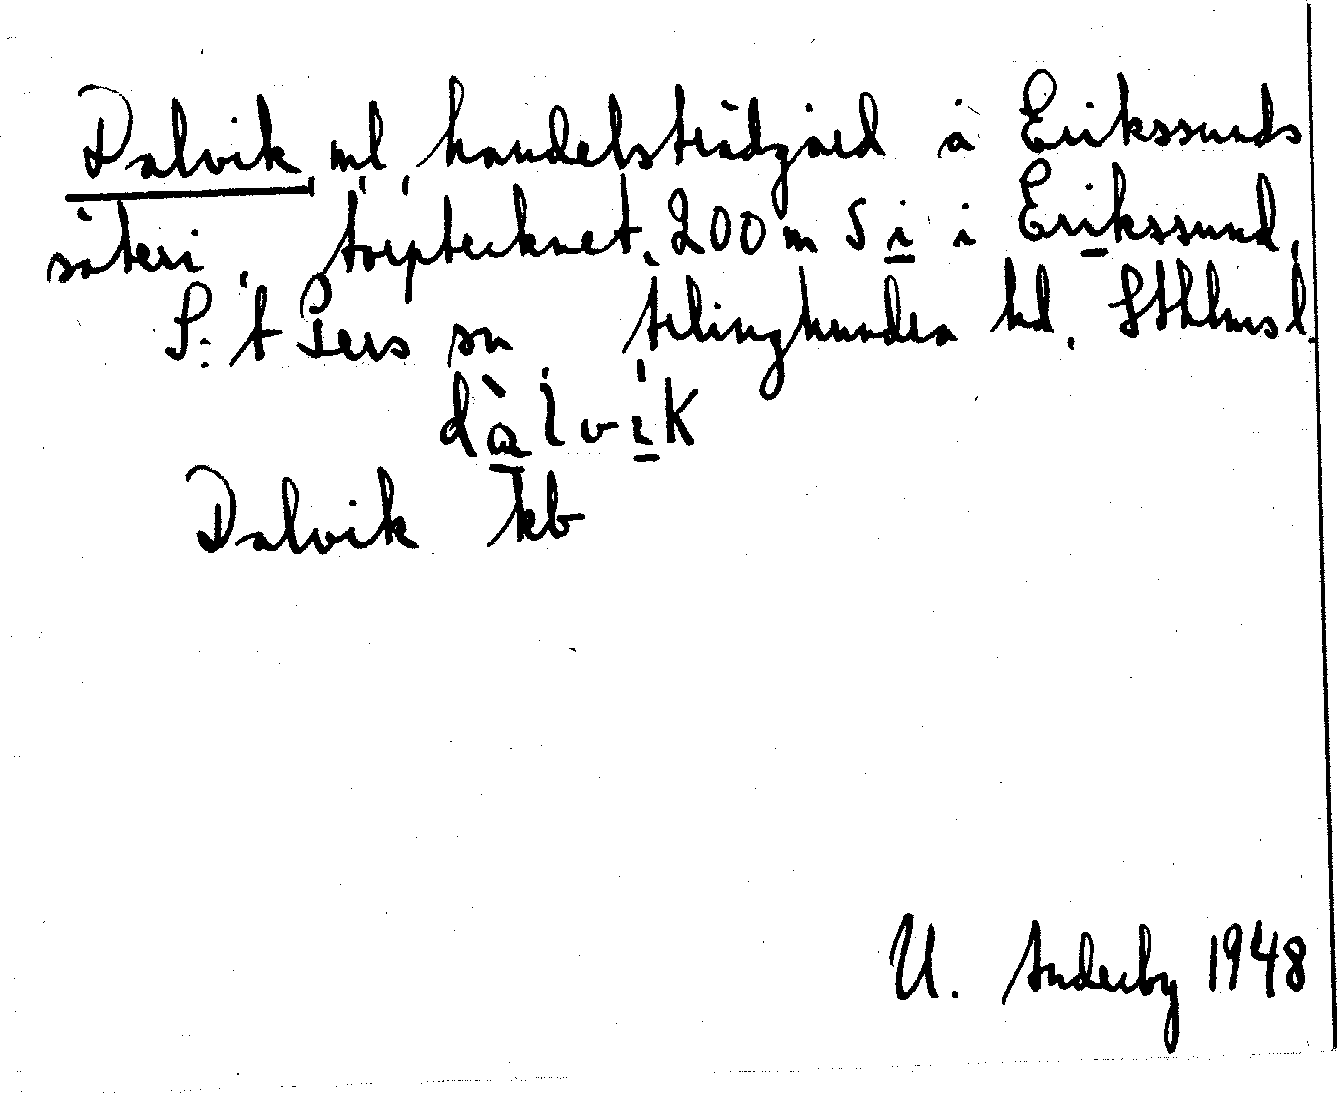 Dalvik, ml, handelsträdgård å Erikssunds
säteri, torptecknet, 200 m S i i Erikssund,
S:t Pers sn Ärlinghundra hd, Sthlms l.
dàlvik
Dalvik kb
U. Anderby 1948